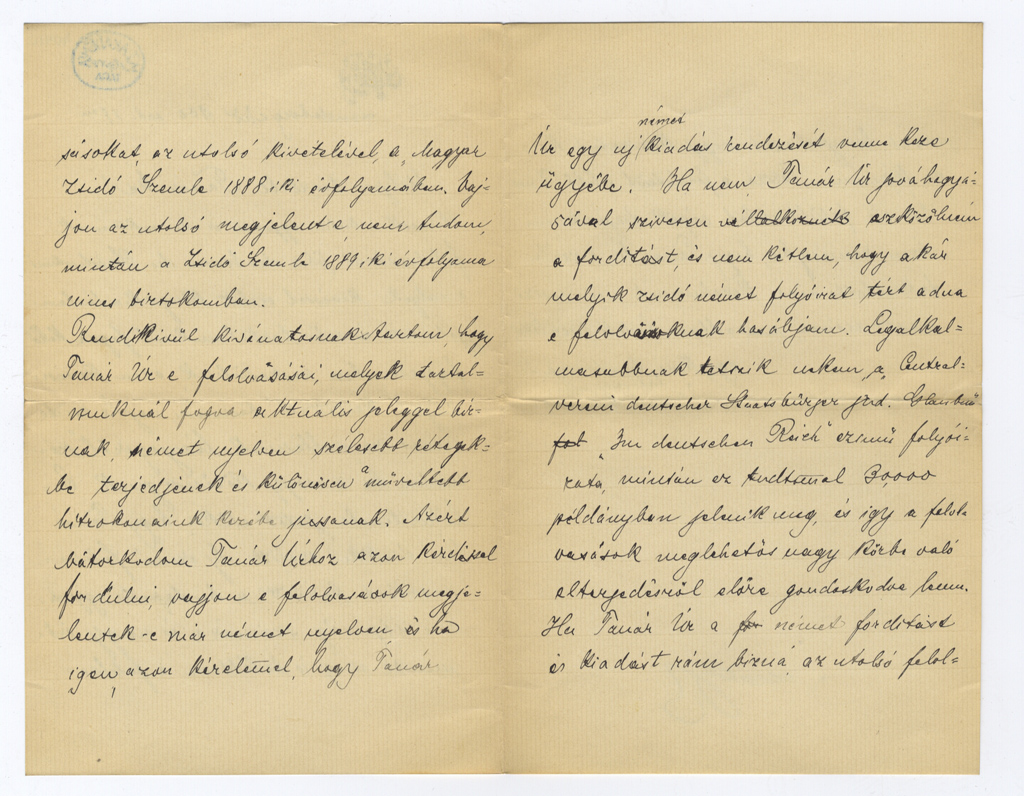 sásokat, az utolsó kivetelével, a „Magyar
Zsidó Szemle 1888iki évfolyamában. Vaj-
jon az utolsó megjelent-e, nem tudom,
mintán a Zsidó Szemle 1889iki évfolyama
nincs birtokomban.
Rendkivül kivánatosnak tartom, hogy
Tanár Úr e felolvasásai, melyek tartal-
muknál fogva aktuális jeleggel bir-
nak, német nyelven szélesebb rétegek-
be terjedjenek és különösen a műveltebb
hitrokonaink kezébe jussanak. Azért
bátorkodom Tanár Úrhoz azon kérdéssel
fordulni, vajjon e felolvasások megje-
lentek-e már német nyelven és ha
igen, azon kérelemmel, hogy Tanár
német
Úr egy uj kiadás rendezését venne keze
ügyébe. Ha nem, Tanár Úr jováhagyá-
sával szivesen vállalkoznék eszközölném
a forditást, és nem kétlem, hogy akár
melyik zsidó német folyóirat tért adna
e felolvasásoknak hasábjain. Legalkal-
masabbnak tetszik nekem „a Central-
verein deutscher Staatsbürger jüd. Glaubens
„Im deutschen Reich" czimű folyói-
rata, mintán ez tudtommal 30,000
példányban jelenik meg, és igy a felol-
vasások meglehetős nagy körbe való
elterjedésről előre gondoskodva lenne.
Ha Tanár Úr a német forditást
és kiadást rám bizná, az utolsó felol-